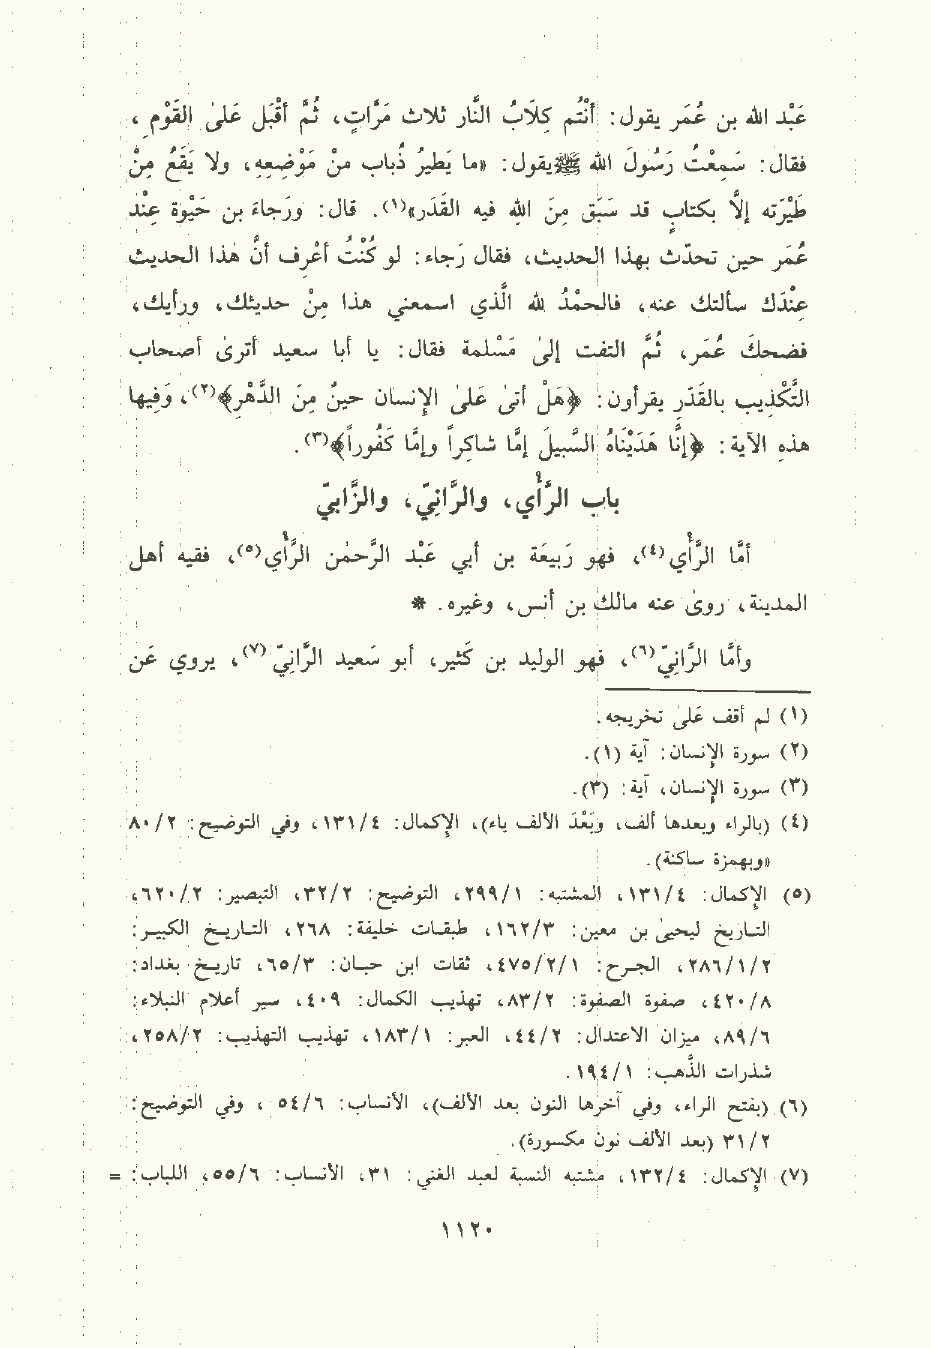 عَبْد الله بن عُمَر يقول: أنْتُم كِلَابُ النَّار ثلاث مَرَّاتٍ، ثُمَّ أقْبَل عَلىٰ القَوْمِ،
فقال: سَمِعْتُ رَسُولَ الله ﷺ يقول: «ما يَطيرُ ذُباب مِنْ مَوْضِعِهِ، ولا يَقَعُ مِنْ
طَيْرَته إلَّا بكتابٍ قد سَبَق مِنَ اللهِ فيه القَدَر»(١). قال: ورَجاءَ بن حَيْوة عِنْد
عُمَر حين تحدّث بهذا الحديث، فقال رَجاء: لو كُنْتُ أعْرِف أنَّ هذا الحديث
عِنْدَك سألتك عنه، فالحمْدُ لله الَّذي اسمعني هذا مِنْ حديثك، ورأيك،
فضحكَ عُمَر، ثُمَّ التفت إلىٰ مَسْلمة فقال: يا أبا سعيد أترىٰ أصحاب
التَّكْذِيب بالقَدَرِ يقرأون: ﴿هَلْ أتىٰ عَلىٰ الإنسان حينٌ مِنَ الدَّهْرِ﴾(٢)، وَفِيها
هذهِ الآية: ﴿إنَّا هَدَيْنَاهُ السَّبيلَ إمَّا شاكِراً وإمَّا كَفُوراً﴾(٣).
باب الرَّأْي، والرَّانِيّ، والزَّابيّ
أمَّا الرَّأْي(٤)، فهو رَبيعَة بن أبي عَبْد الرَّحمٰن الرَّأْي(٥)، فقيه أهل
المدينة، روىٰ عنه مالك بن أنس، وغيره. *
وأمَّا الرَّانِيّ(٦)، فهو الوليد بن كَثير، أبو سَعيد الرَّانِيّ(٧)، يروي عَن
(١) لم أقف عَلىٰ تخريجه.
(٢) سورة الإنسان: آية (١).
(٣) سورة الإنسان، آية: (٣).
(٤) (بالراء وبعدها ألف، وبَعْدَ الألف ياء)، الإكمال: ٤/١٣١، وفي التوضيح: ٢/٨٠
«وبهمزة ساكنة).
(٥) الإكمال: ٤/١٣١، المشتبه: ١/٢٩٩، التوضيح: ٢/٣٢، التبصير: ٢/٦٢٠،
التاريخ ليحيىٰ بن معين: ٣/١٦٢، طبقات خليفة: ٢٦٨، التاريخ الكبير:
٢/١/٢٨٦، الجرح: ١/٢/٤٧٥، ثقات ابن حبان: ٣/٦٥، تاريخ بغداد:
٨/٤٢٠، صفوة الصفوة: ٢/٨٣، تهذيب الكمال: ٤٠٩، سير أعلام النبلاء:
٦/٨٩، ميزان الاعتدال: ٢/٤٤، العبر: ١/١٨٣، تهذيب التهذيب: ٢/٢٥٨،
شذرات الذَّهب: ١/١٩٤.
(٦) (بفتح الراء، وفي آخرها النون بعد الألف)، الأنساب: ٦/٥٤ ، وفي التوضيح:
٢/٣١ (بعد الألف نون مكسورة).
(٧) الإكمال: ٤/١٣٢، مشتبه النسبة لعبد الغني: ٣١، الأنساب: ٦/٥٥، اللباب: =
١١٢٠